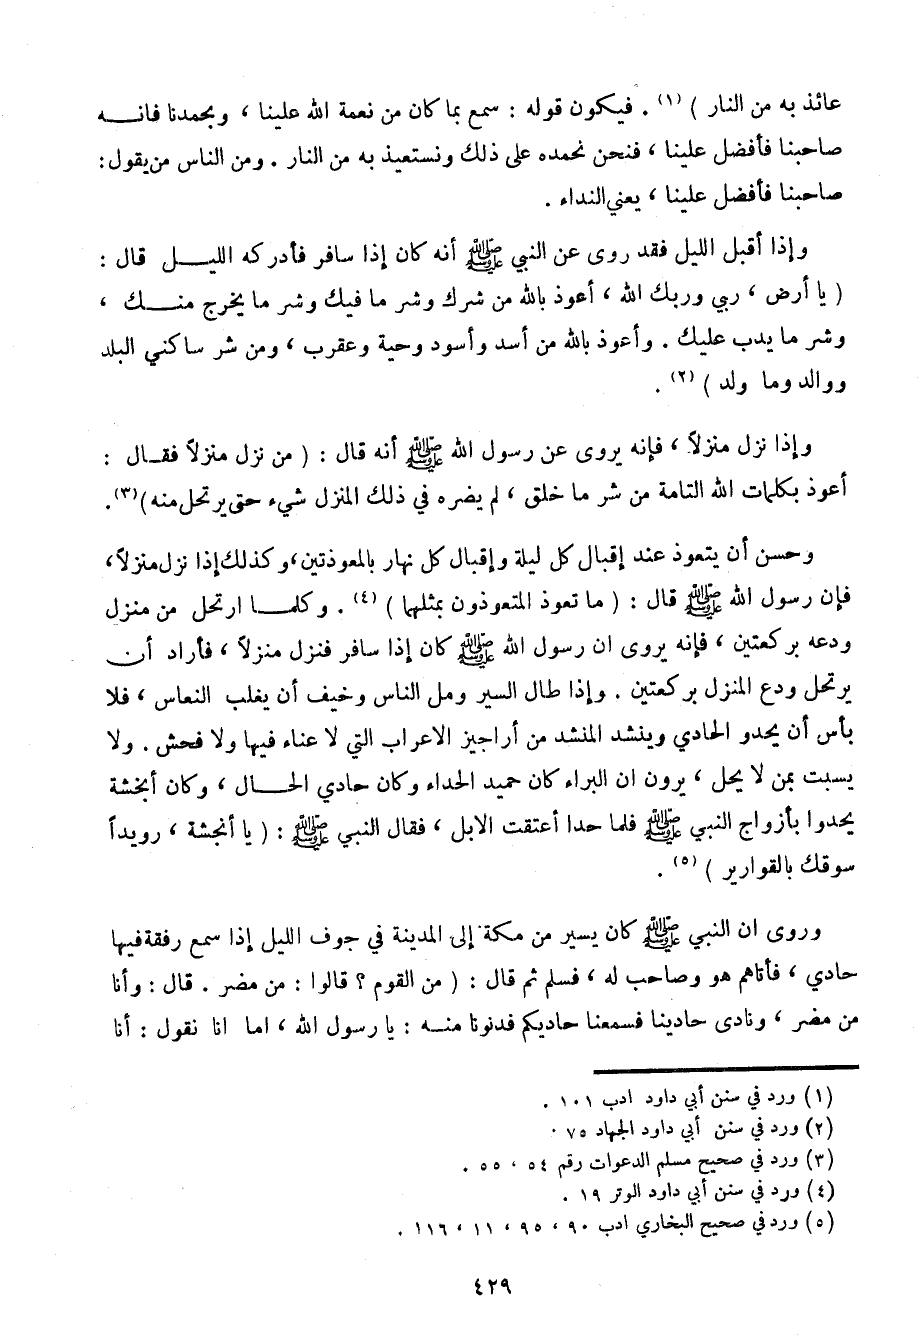 عائذ به من النار ) (١) . فيكون قوله : سمع بما كان من نعمة الله علينا ، وبحمدنا فانــه
صاحبنا فأفضل علينا ، فنحن نحمده على ذلك ونستعيذ به من النار . ومن الناس من يقول :
صاحبنا فأفضل علينا ، يعني النداء .
وإذا أقبل الليل فقد روى عن النبي ﷺ أنه كان إذا سافر فأدركه الليـــل قال :
( يا أرض ، ربي وربك الله ، أعوذ بالله من شرك وشر ما فيك وشر ما يخرج منـــك ،
وشر ما يدب عليك . وأعوذ بالله من أسد وأسود وحية وعقرب ، ومن شر ساكني البلد
ووالد وما ولد ) (٢) .
وإذا نزل منزلاً ، فإنه يروى عن رسول الله ﷺ أنه قال : ( من نزل منزلاً فقــال :
أعوذ بكلمات الله التامة من شر ما خلق ، لم يضره في ذلك المنزل شيء حتى يرتحل منه)(٣).
وحسن أن يتعوذ عند إقبال كل ليلة وإقبال كل نهار بالمعوذتين،وكذلك إذا نزل منزلاً،
فإن رسول الله ﷺ قال : ( ما تعوذ المتعوذون بمثلها ) (٤) . وكلمــا ارتحل من منزل
ودعه بركعتين ، فإنه يروى ان رسول الله ﷺ كان إذا سافر فنزل منزلاً ، فأراد أن
يرتحل ودع المنزل بركعتين . وإذا طال السير ومل الناس وخيف أن يغلب النعاس ، فلا
بأس أن يحدو الحادي وينشد المنشد من أراجيز الاعراب التي لا عناء فيها ولا فحش . ولا
يسبت بمن لا يحل ، يرون ان البراء كان حميد الحداء وكان حادي الحـــال ، وكان أبخشة
يحدوا بأزواج النبي ﷺ فلما حدا أعتقت الابل ، فقال النبي ﷺ : ( يا أنجشة ، رويداً
سوقك بالقوارير ) (٥) .
وروى ان النبي ﷺ كان يسير من مكة إلى المدينة في جوف الليل إذا سمع رفقة فيها
حادي ، فأتاهم هو وصاحب له ، فسلم ثم قال : ( من القوم ؟ قالوا : من مضر . قال : وأنا
من مضر ، ونادى حادينا فسمعنا حاديكم فدنونا منــه : يا رسول الله ، اما انا نقول : أنا
(١) ورد في سنن أبي داود ادب ١٠١ .
(٢) ورد في سنن أبي داود الجهاد ٧٥ ·
(٣) ورد في صحيح مسلم الدعوات رقم ٥٤ ، ٥٥ .
(٤) ورد في سنن أبي داود الوتر ١٩ .
(٥) ورد في صحيح البخاري ادب ٩٠ ، ٩٥ ، ١١ ، ١١٦ .
٤٢٩